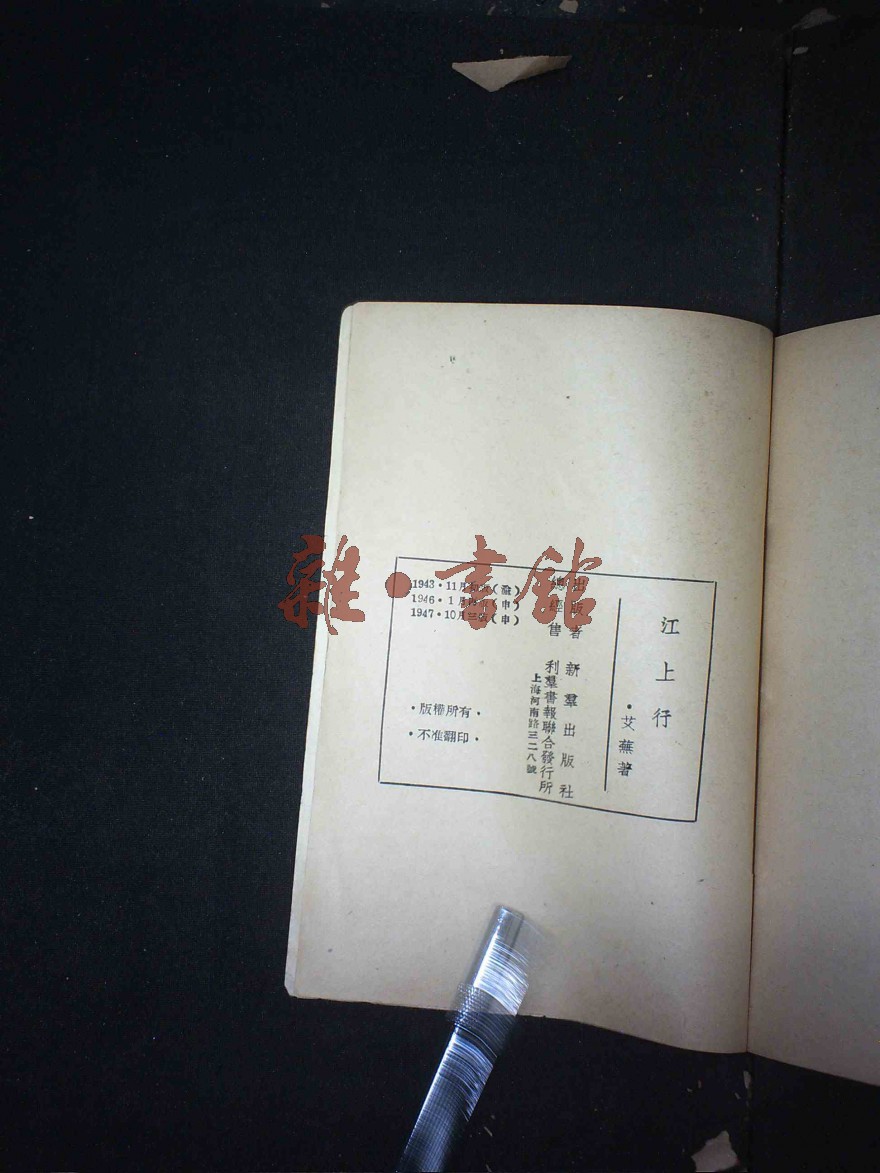 江上行
·艾蕪著
出版者 新羣出版社
總經售 利羣書報聯合發行所
上海河南路三二八號
1943·11月初版(渝)
1946·1月再版(申)
1947·10月三版(申)
·版權所有·
·不准翻印·
雜·書館